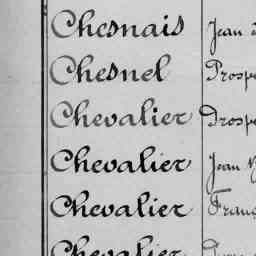 Chesnais Jean
Chesnel Prosp
Chevalier Prosp
Chevalier Jean
Chevalier Franç
Chevalier